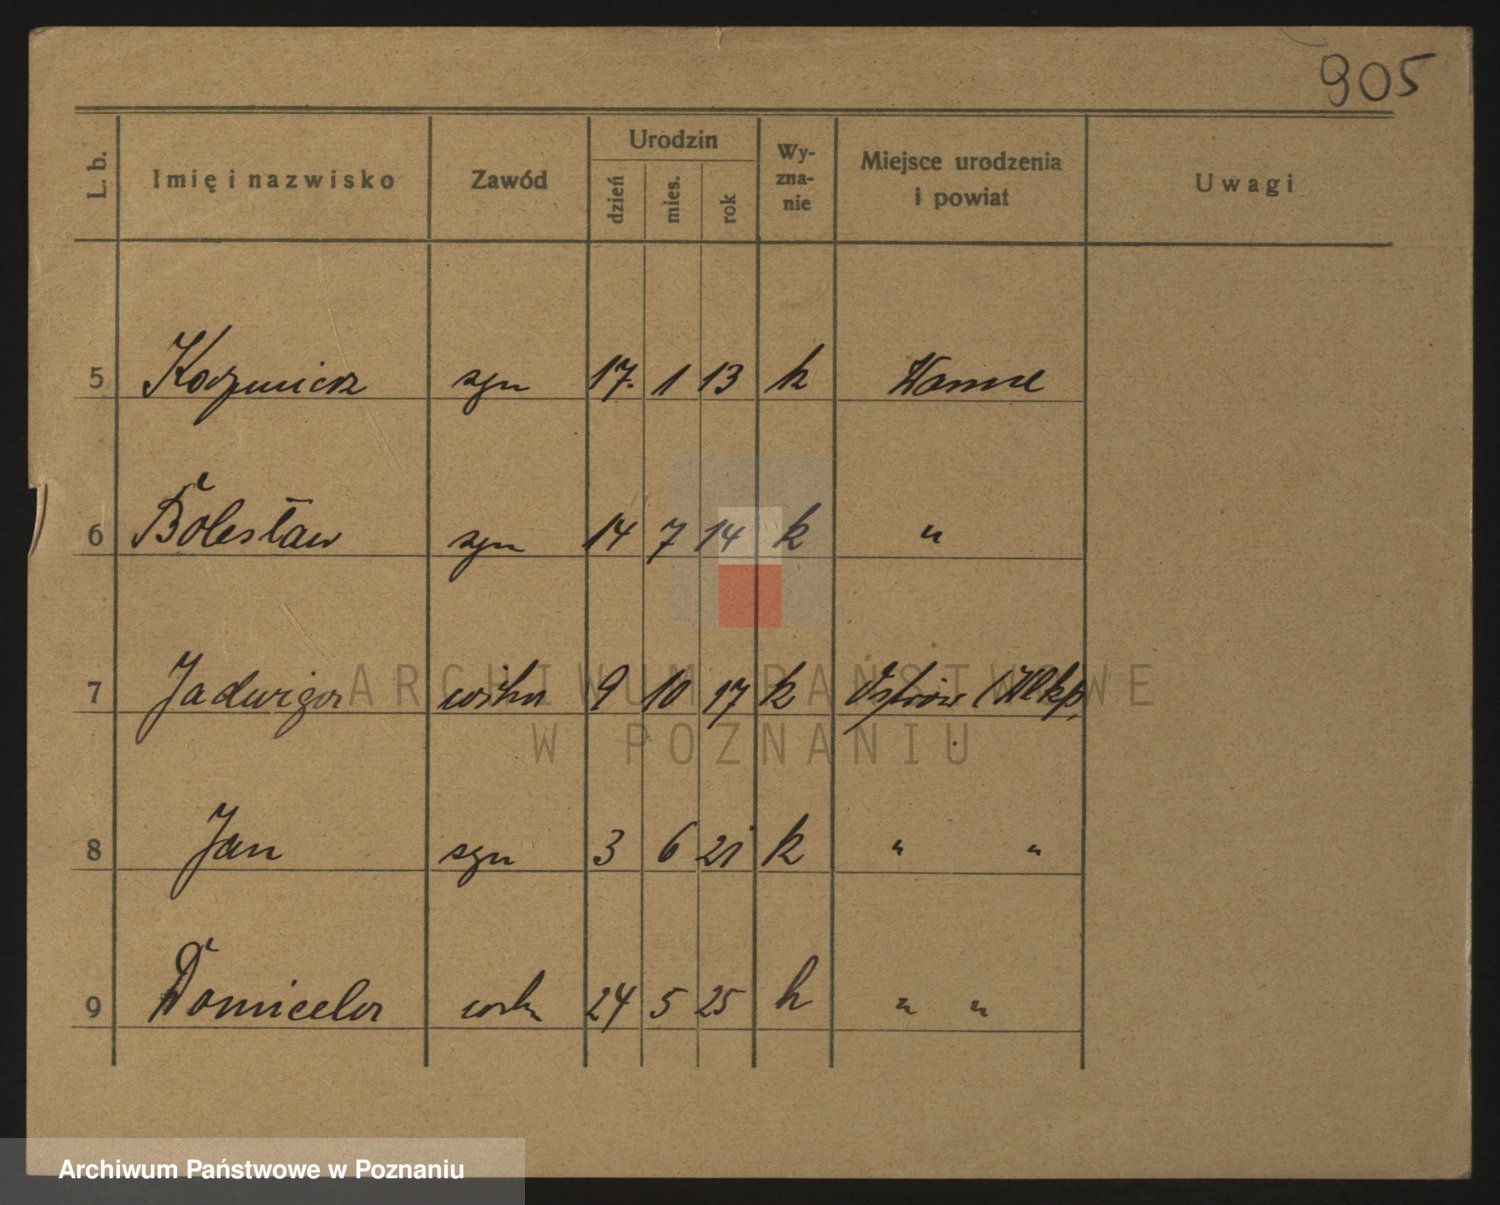 905
L. b. Imię i nazwisko Zawód Urodzin dzień mies. rok Wy-zna-nie Miejsce urodzenia i powiat Uwagi
5 Kazimierz syn 17. 1 13 k Wanne
6 Bolesław syn 14 7 14 k "
7 Jadwiga córka 9 10 17 k Ostrów (Wlkp.
8 Jan syn 3 6 21 k " "
9 Domicela córka 24 5 25 k " "
ARCHIWUM PAŃSTWOWE
W POZNANIU
Archiwum Państwowe w Poznaniu